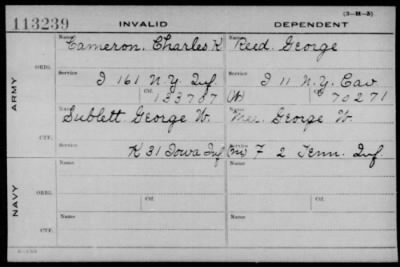 113239 INVALID DEPENDENT (3-M-5)
Name Name
Cameron, Charles K Reed, George
ORIG.
Service Service
I 161 N.Y. Inf. I 11 N.Y. Cav
Ctf. 133707 (W) C 70271
ARMY
Name Name
Sublett George W. George W.
CTF.
Service Service
K 31 Iowa Inf (mi) F 2 Tenn. Inf.
Name Name
ORIG.
Service Service
Ctf. Ctf.
NAVY
Name Name
CTF.
Service Service